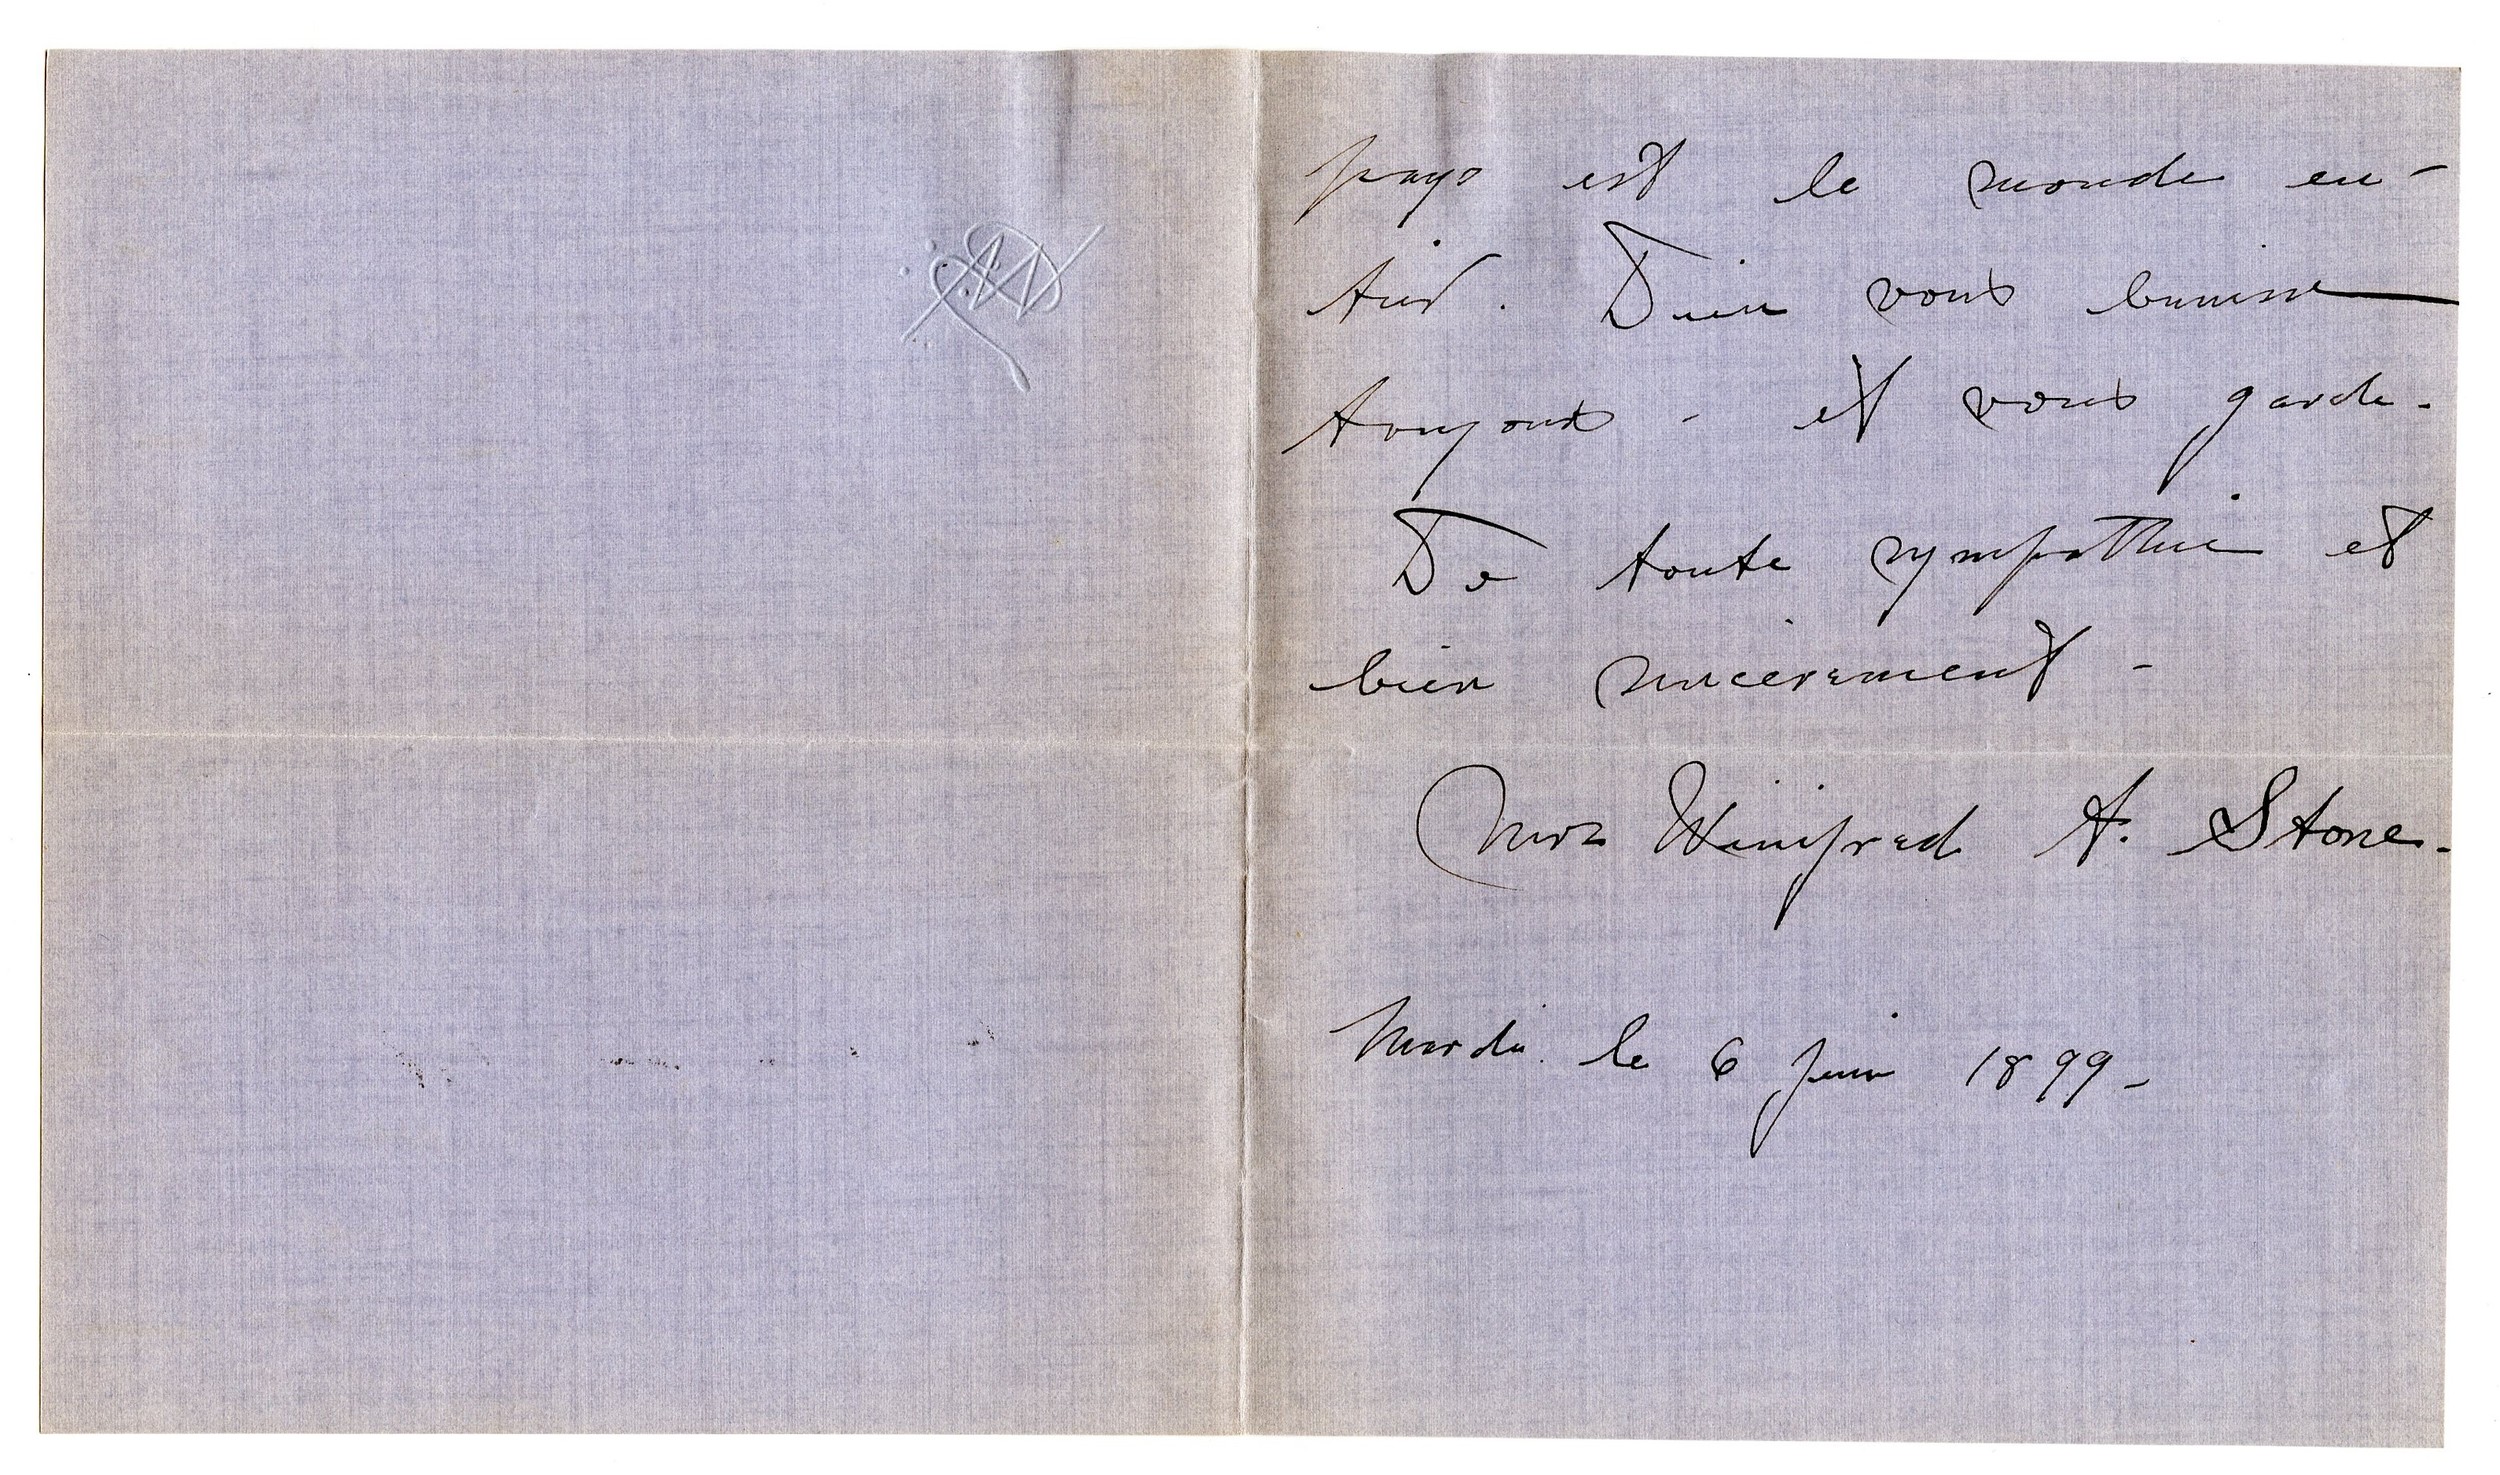 pays est le monde en-
tier. Dieu vous bénisse
toujours - et vous garde.
De toute sympathie et
bien sincerement -
Miss Winifred A. Stone.
Mardi le 6 Juin 1899 -